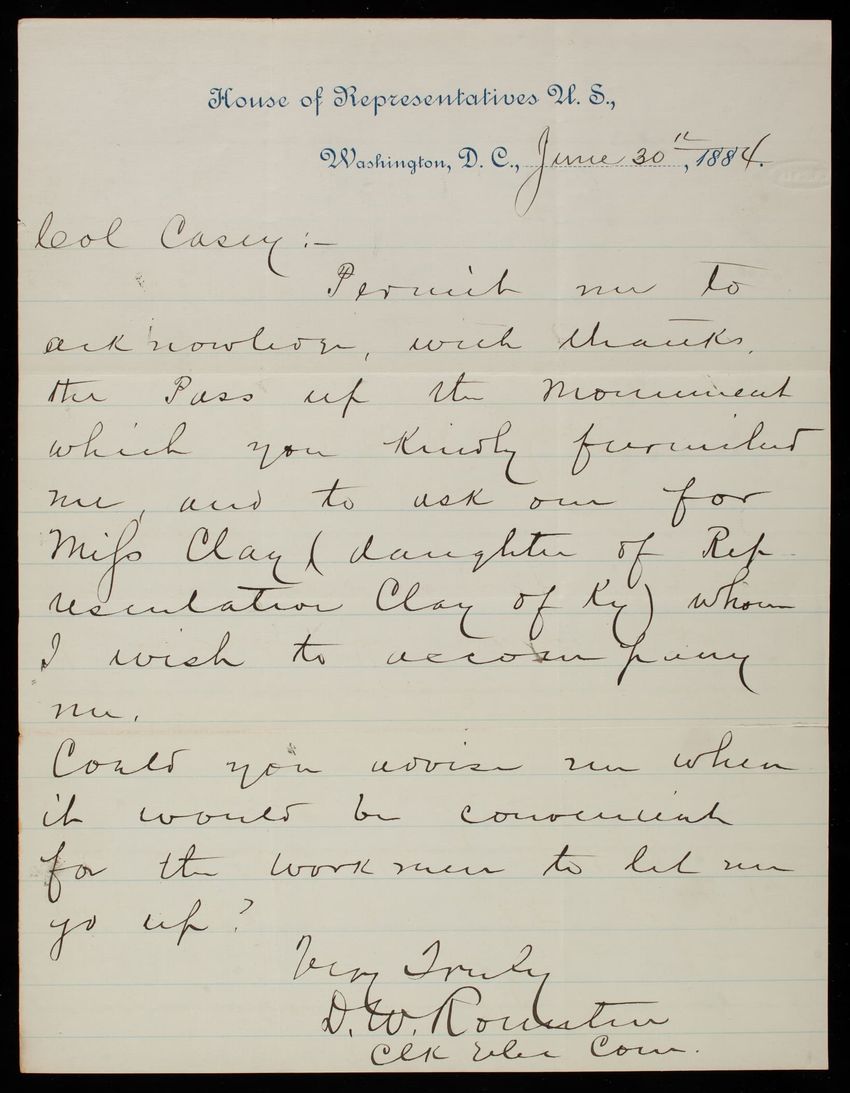 House of Representatives U. S.,
Washington, D. C., June 30th, 1884.
Col Casey :-
Permit me to
acknowledge, with thanks,
the Pass up the Monument
which you kindly furnished
me, and to ask one for
Miss Clay (daughter of Rep-
resentative Clay of Ky) whom
I wish to accompany
me.
Could you advise me when
it would be convenient
for the workmen to let me
go up?
Very Truly
D. W.
Clk Com.